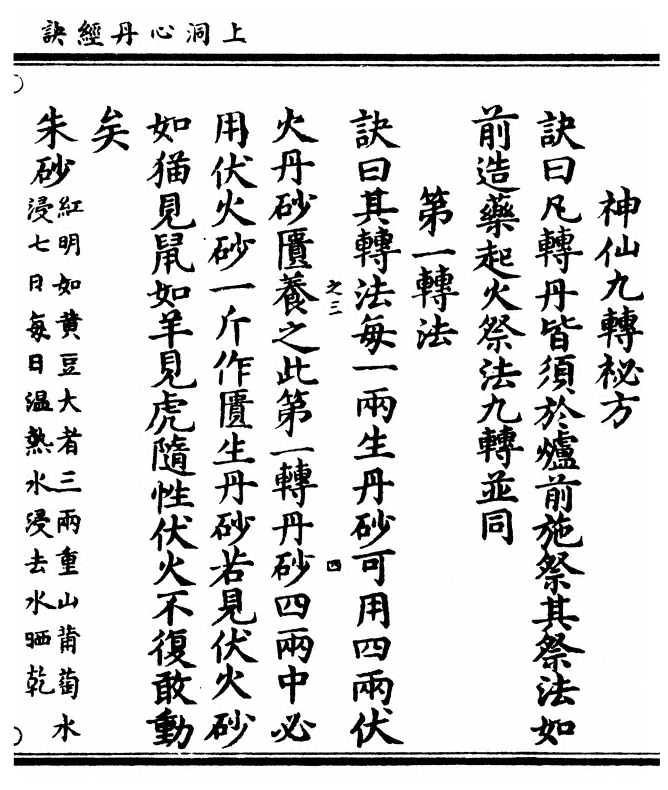 上洞心丹經訣
神仙九轉祕方
訣曰凡轉丹皆須於爐前施祭其祭法如
前造藥起火祭法九轉並同
第一轉法
訣曰其轉法每一兩生丹砂可用四兩伏
之三
四
火丹砂匱養之此第一轉丹砂四兩中必
用伏火砂一斤作匱生丹砂若見伏火砂
如猫見鼠如羊見虎隨性伏火不復敢動
矣
朱砂紅明如黄豆大者三兩重山葡萄水
浸七日每日温熱水浸去水晒乾